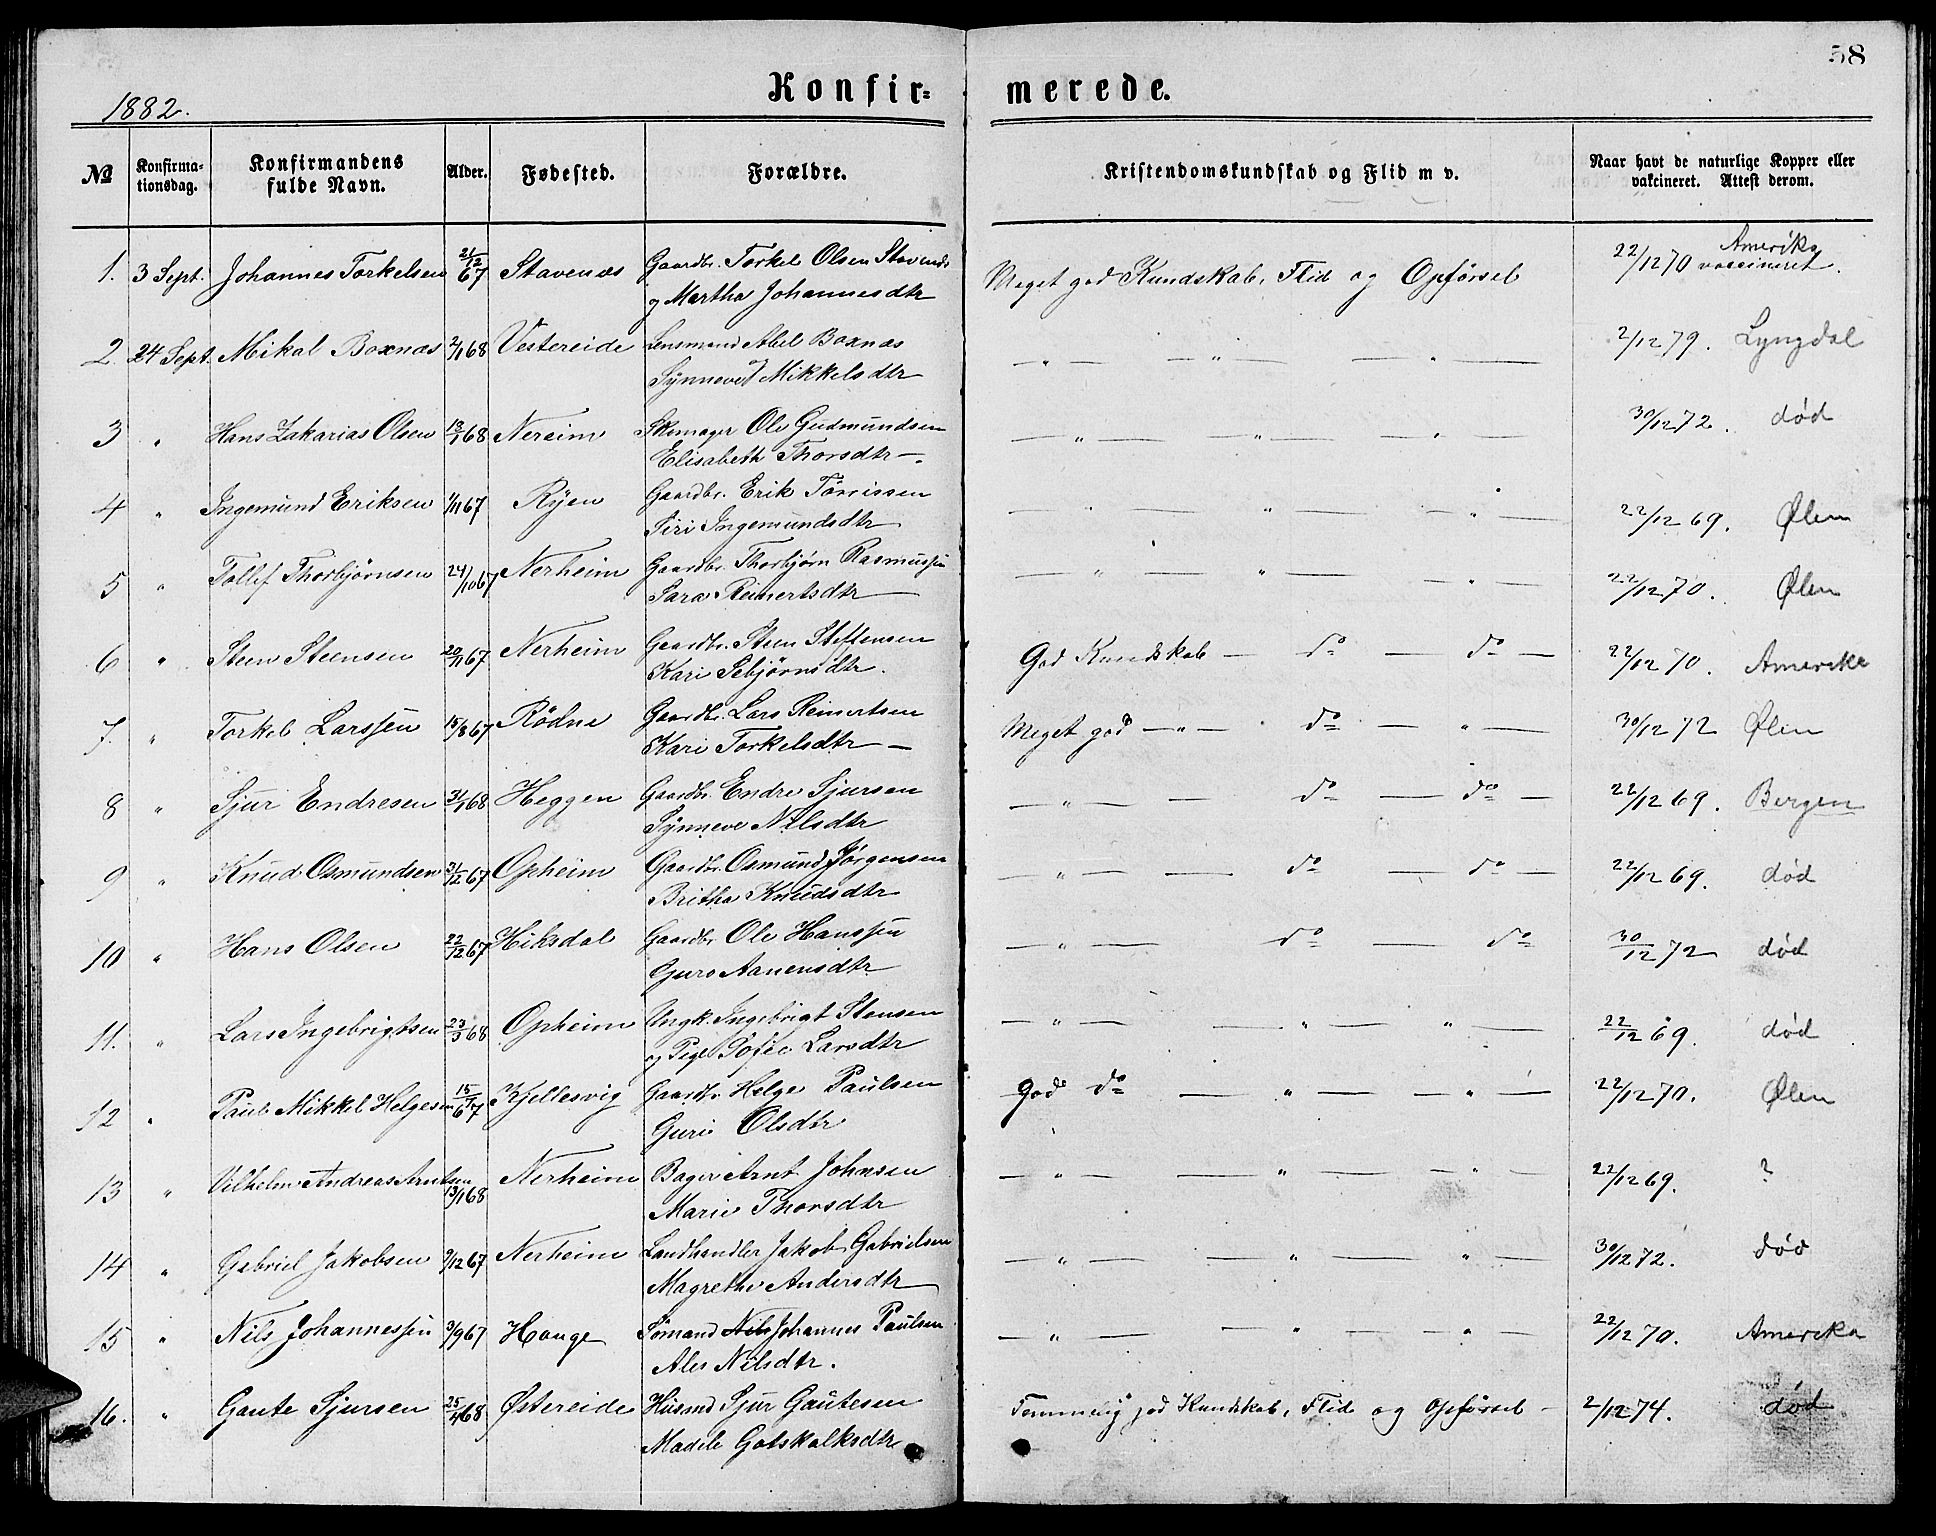 58
Konfir= merede.
1882.
№ Konfirma-tionsdag. Konfirmandens fulde Navn. Alder. Fødested. Forældre. Kristendomskundskab og Flid m v. Naar havt de naturlige Kopper eller vakcineret. Attest derom.
1. 3 Sept. Johannes Torkelsen 21/12 67 Stavenæs Gaardbr. Torkel Olsen Stavenæs Meget god Kundskab, Flid og Opførsel 22/12 70 vaccineret. Amerika
og Martha Johannesdtr
2. 24 Sept. Mikal Boxnæs 2/1 68 Vestereide Lensmand Abel Boxnæs — " — — " — — " — 2/12 79. Lyngdal
Synneve Mikkelsdtr
3 " Hans Zakarias Olsen 13/1 68 Nereim Skomager Ole Gudmundsen — " — — " — — " — 30/12 72. død
Elisabeth Thorsdtr —.
4 " Ingemund Eriksen 1/11 67 Ryen Gaardbr. Erik Tørrissen — " — — " — — " — 22/12 69. Ølen
Siri Ingemundsdtr
5 " Tollef Thorbjørnsen 24/10 67 Nerheim Gaardbr. Thorbjørn Rasmussen — " — — " — — " — 22/12 70. Ølen
Sara Reinertsdtr —
6 " Steen Steensen 20/11 67 Nerheim Gaardbr. Steen Steffensen God Kundskab — do — do — 22/12 70. Amerika
Kari Sebjørnsdtr.
7. " Torkel Larssen 15/8 67 Rødne Gaardbr. Lars Reinertsen Meget god — " — do — " — 30/12 72 Ølen
Kari Torkelsdtr —
8 " Sjur Endresen 31/1 68 Heggen Gaardbr. Endre Sjursen — " — — do — do — 22/12 69. Bergen
Synneve Nilsdtr
9 " Knud Osmundsen 31/12 67 Opheim Gaardbr. Osmund Jørgensen — " — — do — do — 22/12 69. død
Britha Knudsdtr
10 " Hans Olsen 22/12 67 Hiksdal Gaardbr. Ole Hanssen — " — do — do 30/12 72 død
Guro Aanensdtr
11. " Lars Ingebrigtsen 23/3 68 Opheim Ungk. Ingebrigt Stensen — " — — " — " — 22/12 69. død
og Pige Sofie Larsdtr
12 " Paul Mikkel Helgesen 15/6 67 Kjellesvig Gaardbr. Helge Paulsen God do — " — — " — 22/12 70. Ølen
Guri Olsdtr
13 " Vilhelm Andreas Arntsen 13/1 68 Nerheim Bager Arnt Johnsen — " — — " — — " — 22/12 69. ?
Marie Thorsdtr
14 " Gabriel Jakobsen 9/12 67 Nerheim Landhandler Jakob Gabrielsen — " — — " — " — 30/12 72. død
Magrethe Andersdtr
15 " Nils Johannessen 3/9 67 Hauge Sømand Nils Johannes Paulsen — " — — " — — " — 22/12 70. Amerika
Ales Nilsdtr.
16. " Gaute Sjursen 25/4 68 Østereide Husmd Sjur Gautesen Temmelig god Kundskab, Flid og Opførsel - 2/12 74. død
Madele Gotskalksdtr